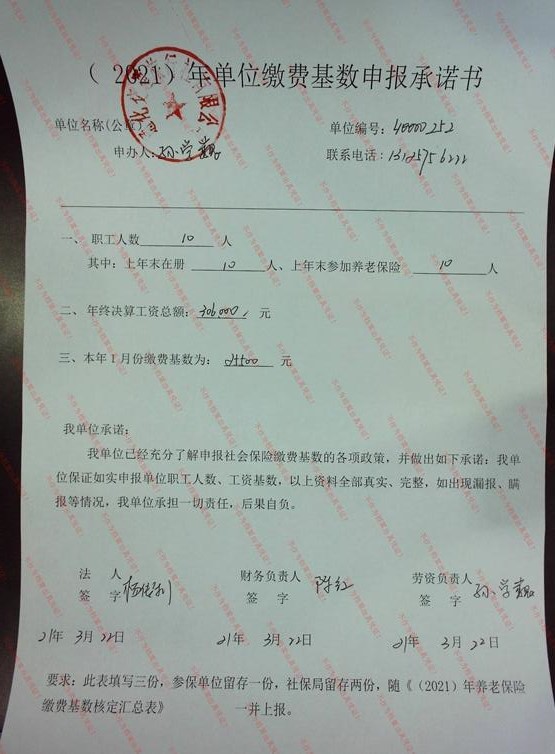 （ 2021）年单位缴费基数申报承诺书
单位名称(公章) 单位编号：40000252
申办人：孙学 联系电话：13125756222
一、 职工人数 10 人
其中：上年末在册 10 人、上年末参加养老保险 10 人
二、年终决算工资总额：306,000 元
三、本年 1 月份缴费基数为： 25500 元
我单位承诺：
我单位已经充分了解申报社会保险缴费基数的各项政策，并做出如下承诺：我单
位保证如实申报单位职工人数、工资基数，以上资料全部真实、完整，如出现漏报、瞒
报等情况，我单位承担一切责任，后果自负。
法 人 财务负责人 劳资负责人
签 字 杨 签 字 陈红 签 字 孙学
21年 3月 22日 21年 3月 22日 21年 3月 22日
要求：此表填写三份，参保单位留存一份，社保局留存两份，随《（2021）年养老保险
缴费基数核定汇总表》 一并上报。